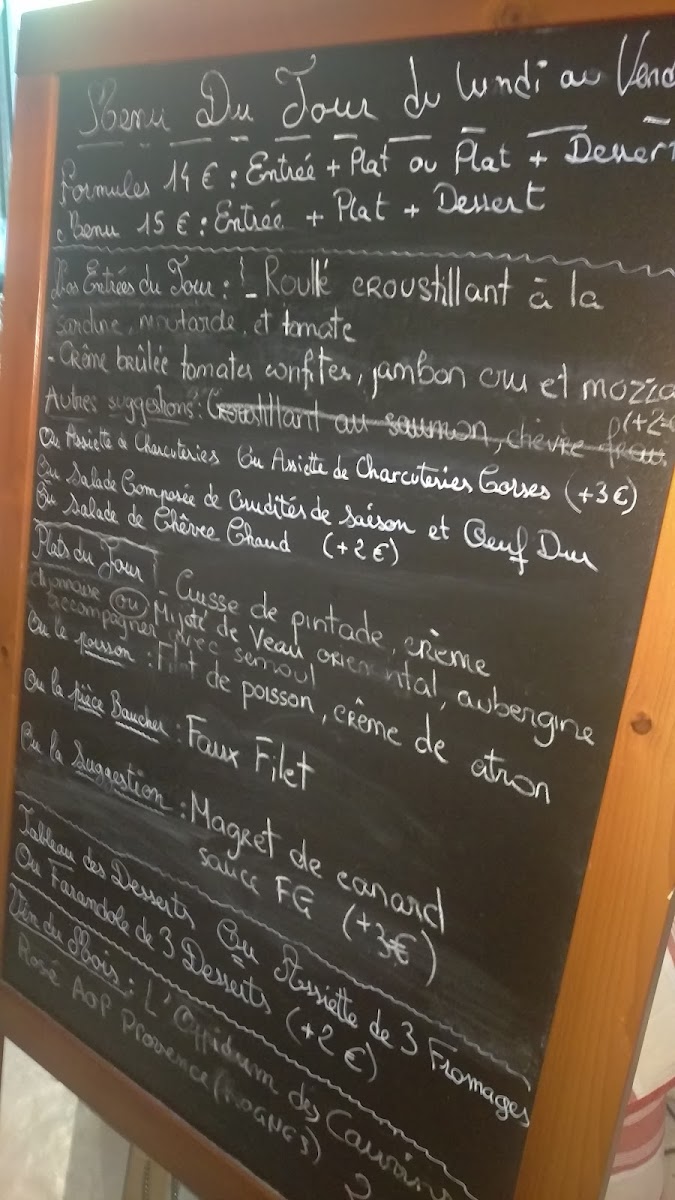 Menu Du Jour du lundi au Vend
Formules 14 € : Entrée + Plat ou Plat + Dessert
Menu 15 € : Entrée + Plat + Dessert
Nos Entrées du Jour : - Roullé croustillant à la
sardine, moutarde, et tomate
- Crème brûlée tomates confites, jambon cru et mozza
Autres suggestions : Croustillant au saumon, chèvre frais (+2€
Ou Assiette de Charcuteries Ou Assiette de Charcuteries Corses (+3€)
Ou Salade Composée de Crudités de saison et Oeuf Dur
Ou Salade de Chèvre Chaud (+2€)
Plats du Jour - Cuisse de pintade, crème
dijonnaise ou Mijoté de Veau oriental, aubergine
accompagner avec semoul
Ou le poisson : Filet de poisson, crème de citron
Ou la pièce Boucher : Faux Filet
Ou la Suggestion : Magret de canard
sauce FG (+3€)
Tableau des Desserts Ou Assiette de 3 Fromages
Ou Farandole de 3 Desserts (+2€)
Vin du Mois : L'Oppidum des Cauvins
Rosé AOP Provence (ROGNES) 2